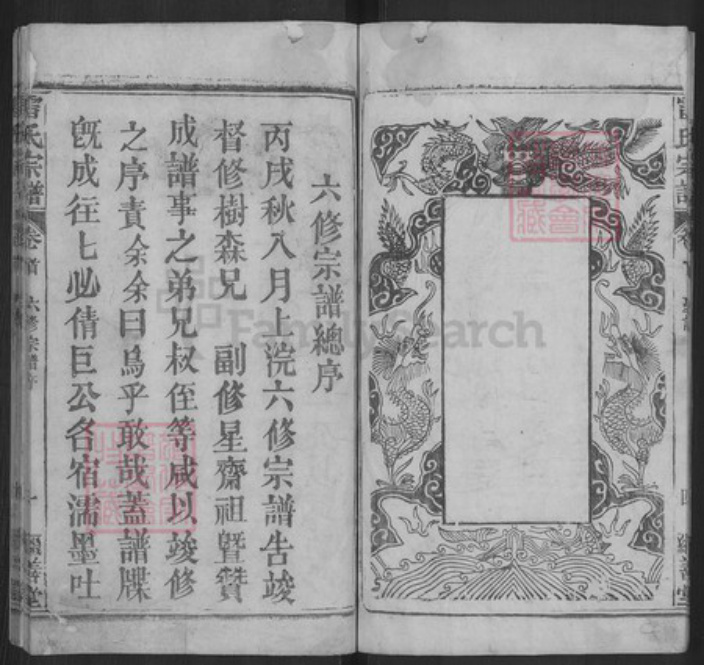 六修宗譜總序
丙戌秋八月上浣六修宗譜告竣
督修樹森兄 副修星齋祖暨贊
成譜事之弟兄叔侄等咸以竣修
之序責余余曰烏乎敢哉蓋譜牒
旣成徃七必倩巨公名宿濡墨吐
氏宗譜
卷首
六修宗譜序
一
氏宗譜
FamilySearch